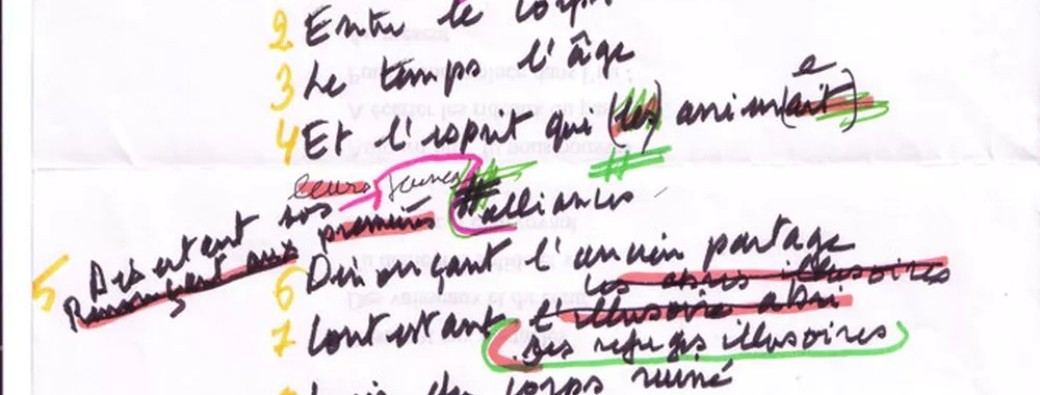 2 Entre le corps
3 Le temps l'âge
e
4 Et l'esprit qui (les) anim(ait)
leurs jeunes
5 Désertant nos premières alliances
Renonçant aux
6 Dénonçant l'ancien partage
Les abris illusoires
7 Contestant l'illusoire abri
Des refuges illusoires
corps ruiné